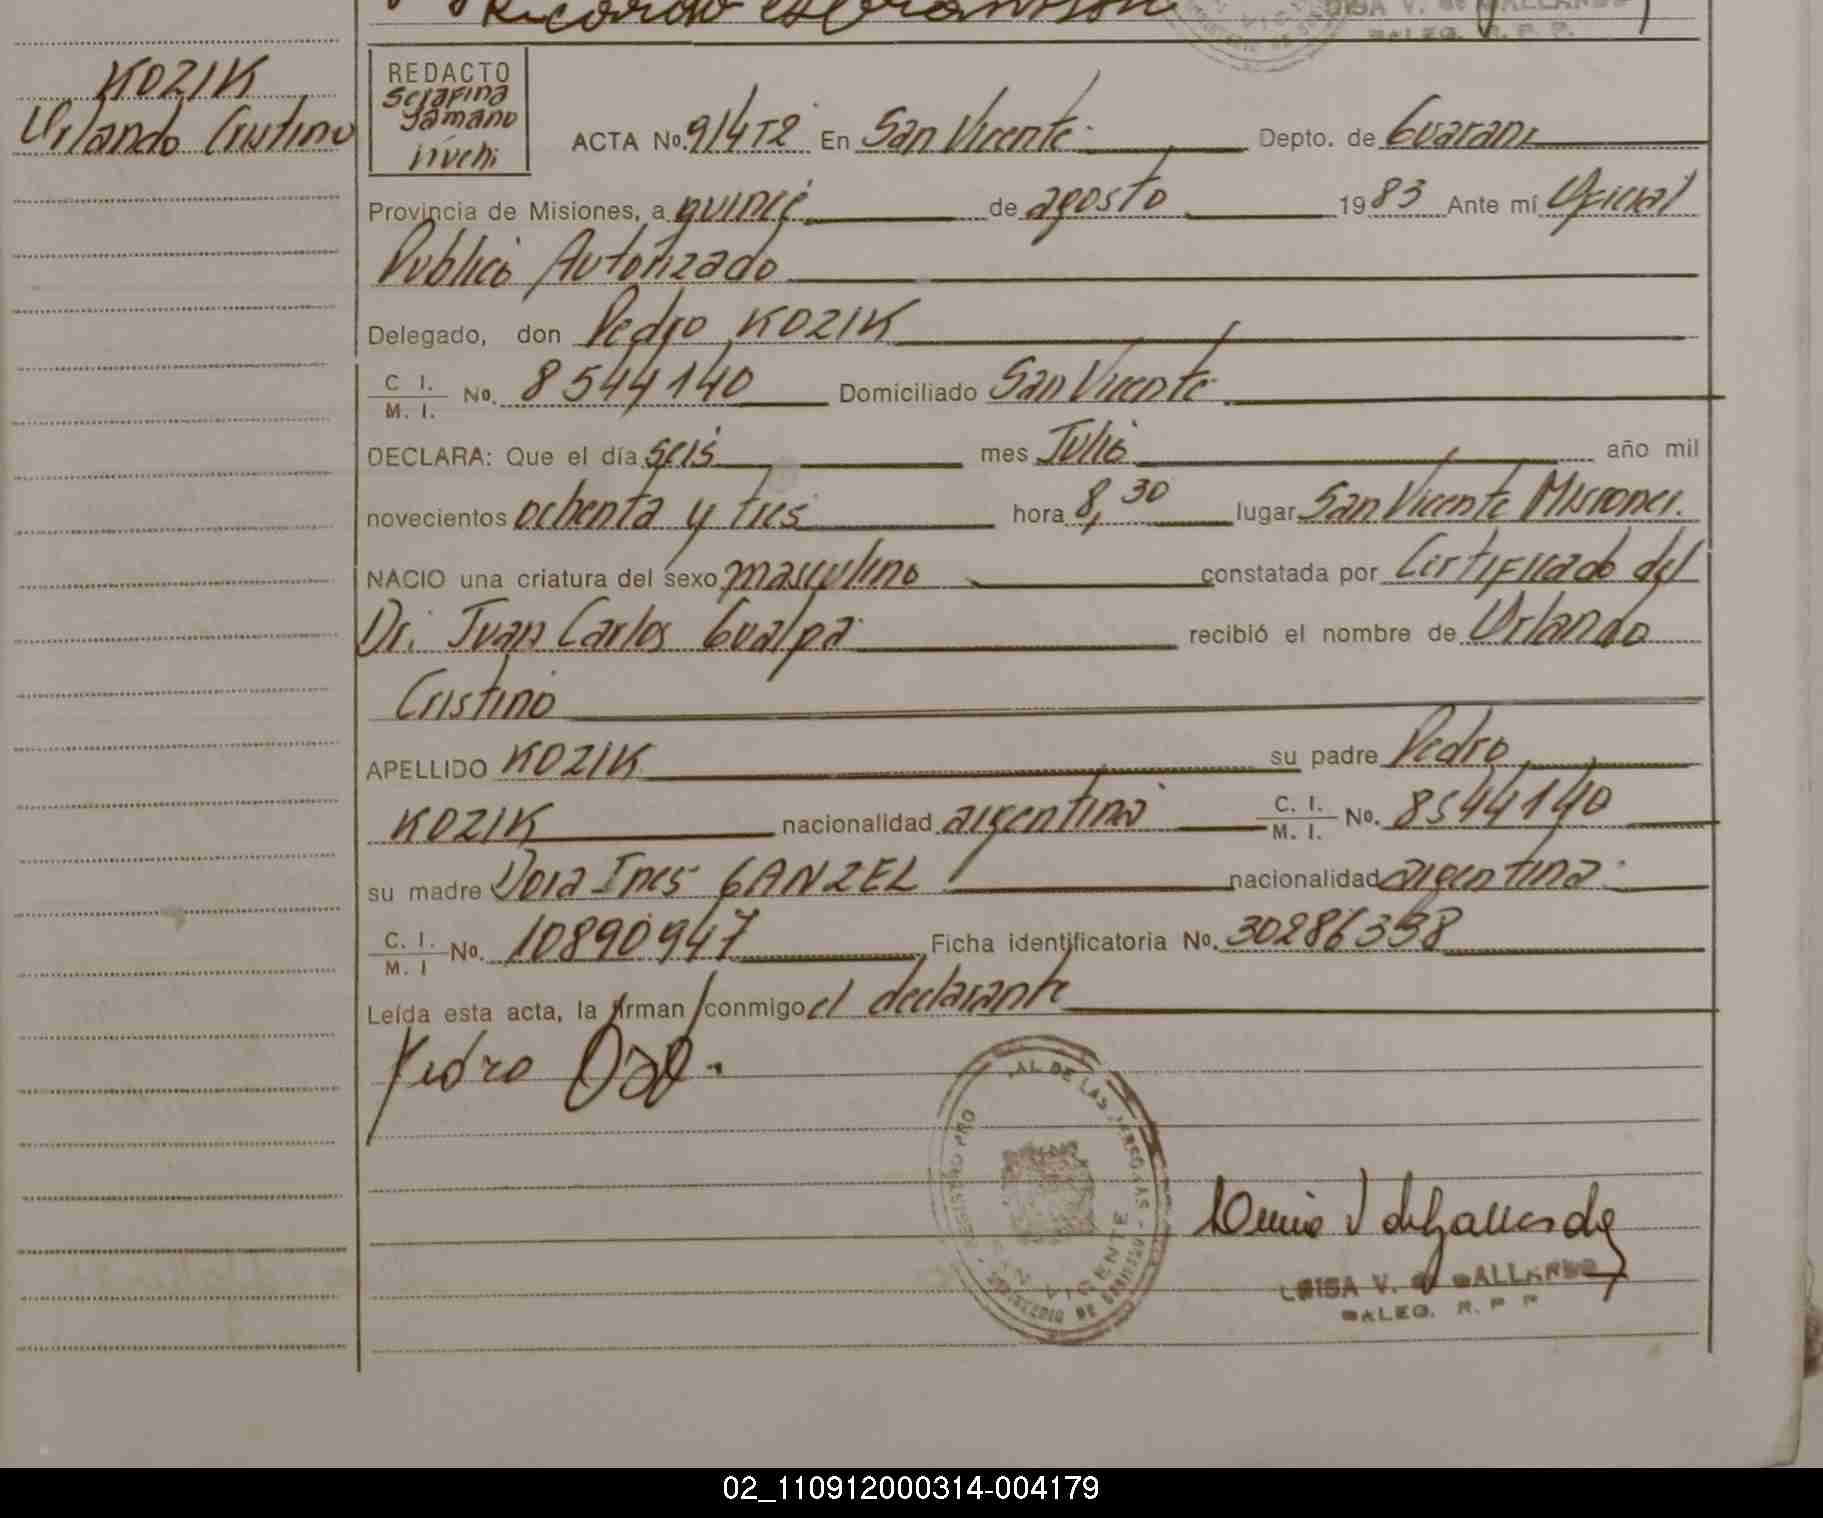 KOZIK
Orlando Cristino
REDACTO
Serafina
Jamano
ACTA No. 91/4T2 En San Vicente Depto. de Guarani
Provincia de Misiones, a quince de agosto 1983 Ante mí Oficial
Publico Autorizado
Delegado, don Pedro KOZIK
C I. M. I. No. 8544140 Domiciliado San Vicente
DECLARA: Que el día seis mes Julio año mil
novecientos ochenta y tres hora 8,30 lugar San Vicente Misiones.
NACIO una criatura del sexo masculino constatada por Certificado del
Dr. Juan Carlos Gualpa recibió el nombre de Orlando
Cristino
APELLIDO KOZIK su padre Pedro
KOZIK nacionalidad argentina C. I. M. I. No. 8544140
su madre Dora Ines GANZEL nacionalidad argentina
C. I. M. I No. 10890947 Ficha identificatoria No. 30286338
Leída esta acta, la firman conmigo el declarante
Pedro
AL DE LAS PERSONAS
SAN VICENTE
MINISTERIO DE GOBIERNO
LUISA V. de GALLARDO
DALEG. R. P. P.
02_110912000314-004179